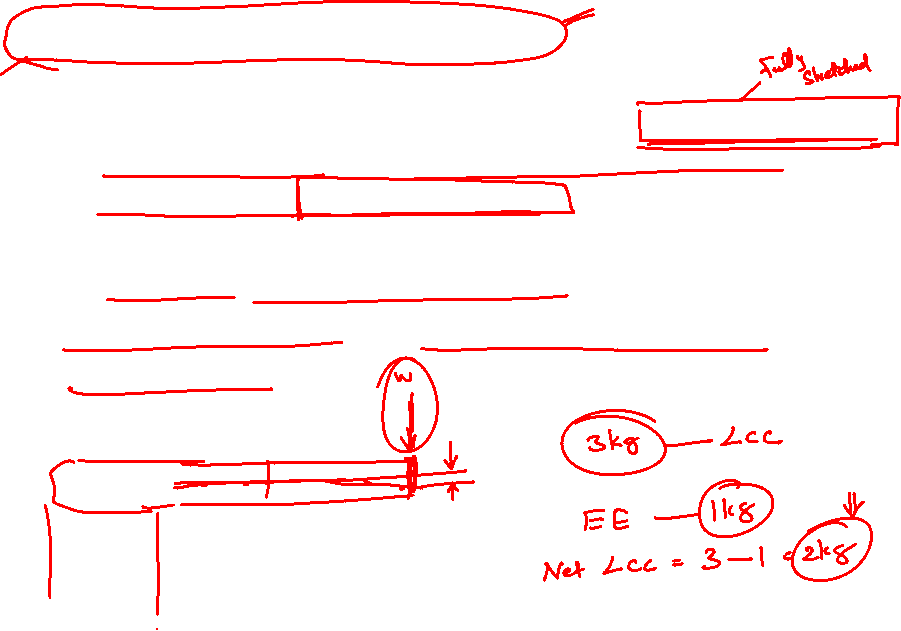 Fully
Stretched
W
3kg — LCC
EE — 1kg
Net LCC = 3 — 1 = 2kg